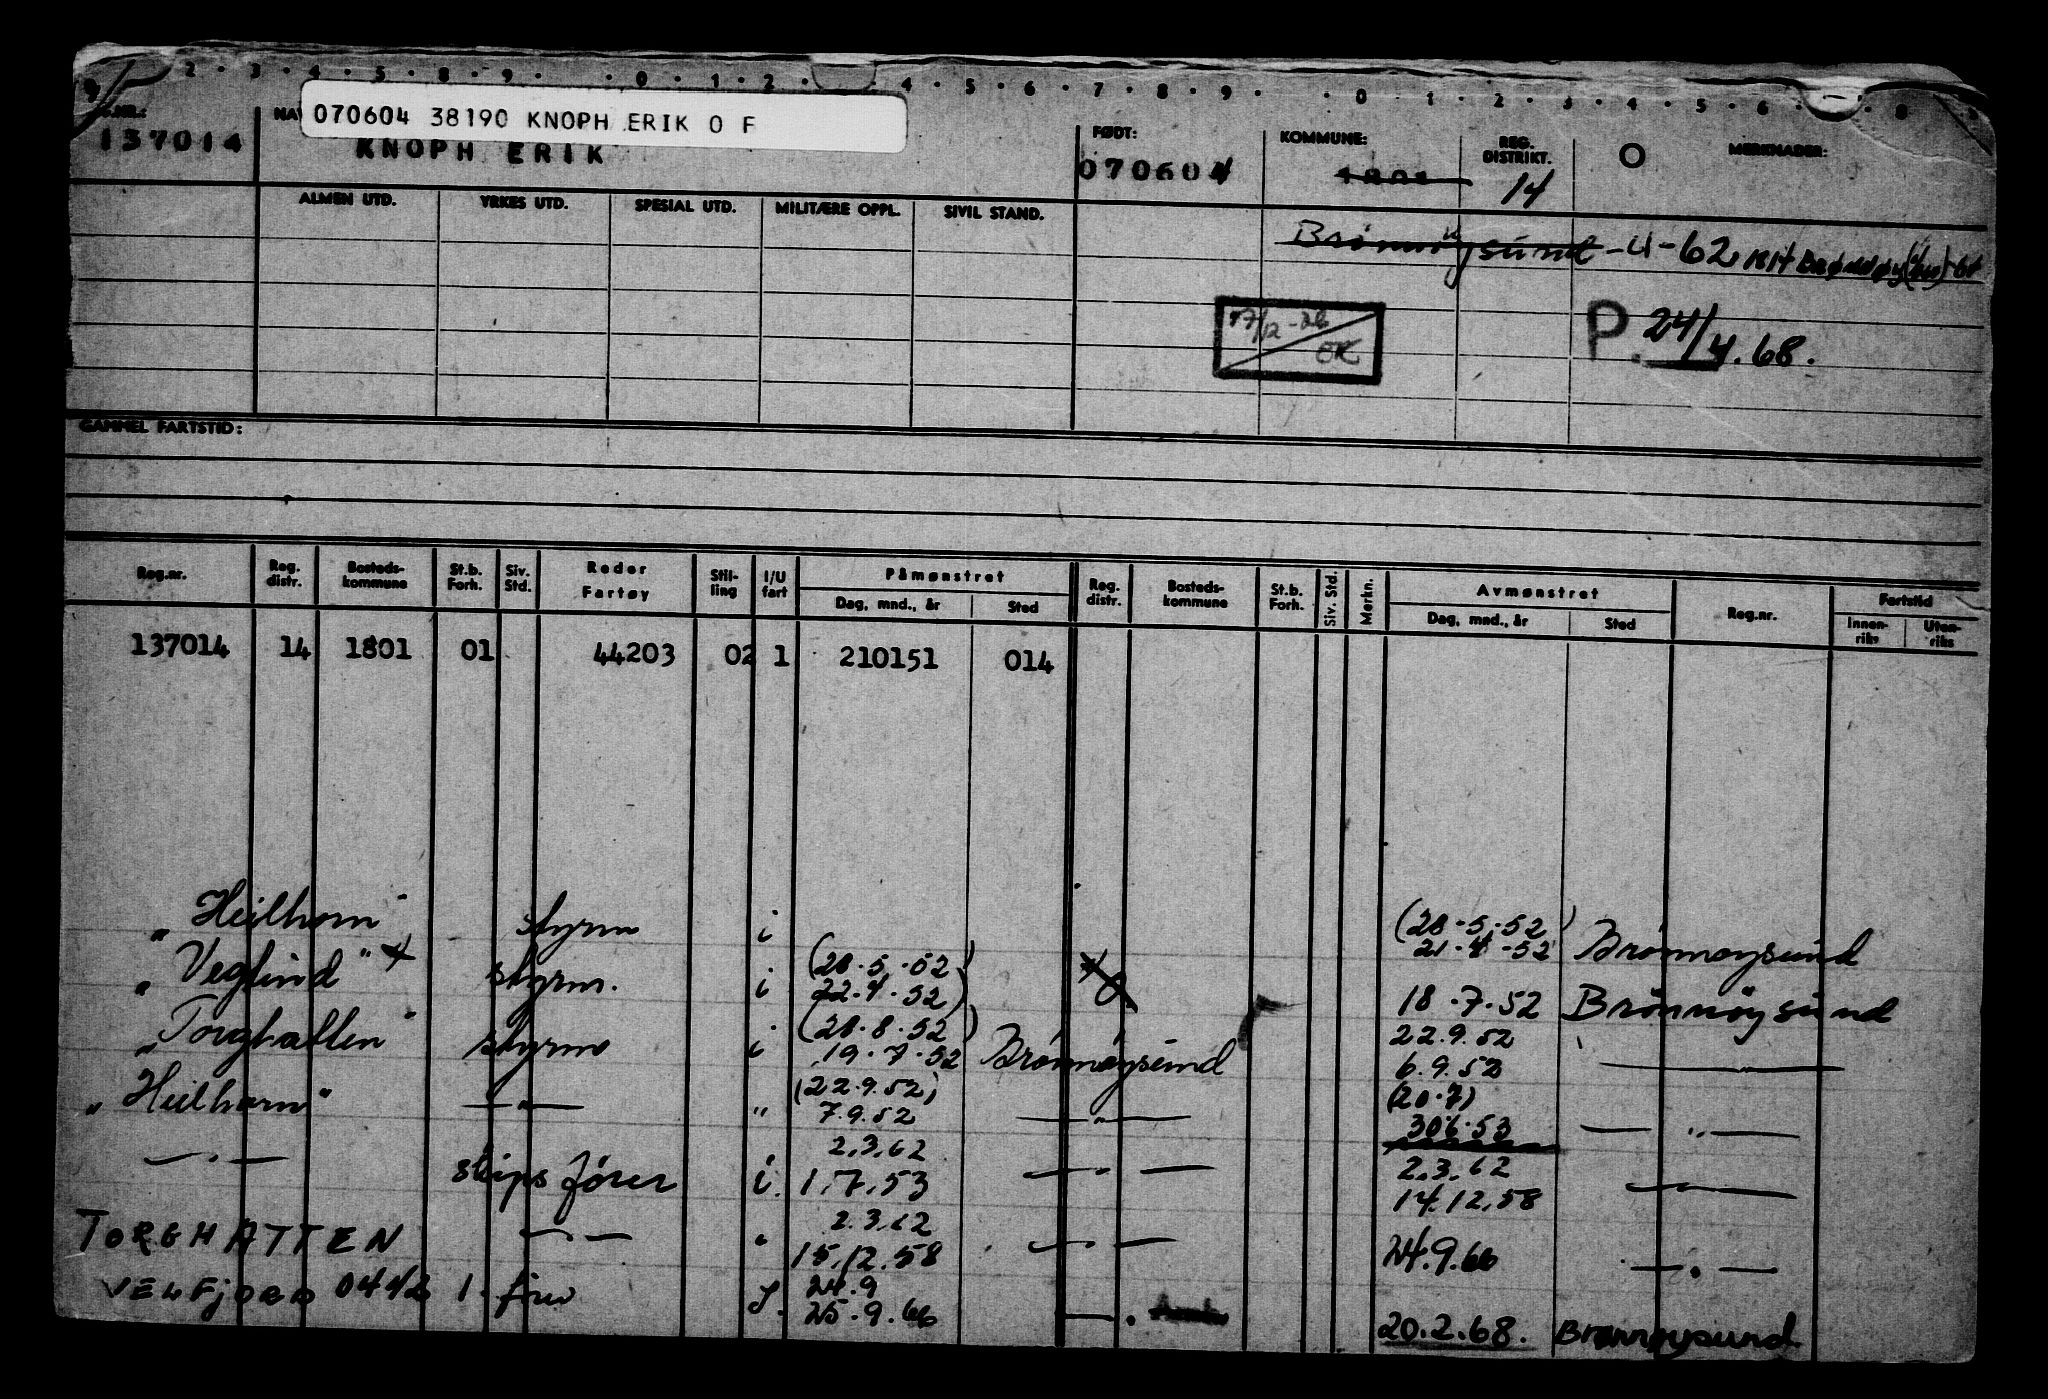 2 · 3 · 4 · 5 · 8 · 9 · · 0 · 1 · 2 · 4 · 5 · 6 · 7 · 8 · 9 · · 0 · 1 · 2 · 3 · 4 · 5 · 6 · 8
070604 38190 KNOPH ERIK O F
137014 KNOPH ERIK
FØDT: 070604
KOMMUNE:
REG. DISTRIKT. 14
O MERKNADER:
ALMEN UTD. YRKES UTD. SPESIAL UTD. MILITÆRE OPPL. SIVIL STAND.
Brønnøysund - 4 - 62
17/12-26 OK
P. 24/4.68.
GAMMEL FARTSTID:
Reg.nr. Reg. distr. Bosteds-kommune St.b. Forh. Siv. Std. Reder Fartøy Stil-ling I/U fart Påmønstret Reg. distr. Bosteds-kommune St.b. Forh. Siv. Std. Merkn. Avmønstret Reg.nr. Fartstid
Dag, mnd., år Sted Dag, mnd., år Sted Innen-riks Uten-riks
137014 14 1801 01 44203 02 1 210151 014
"Heilhorn" styrm i (28.5.52) 21.4.52 Brönnöysund
"Vegtind" styrm. i (28.5.52) 22.4.52 18.7.52 Brönnöysund
"Torghatten" styrm i (28.8.52) 19.7.52 Brönnöysund 22.9.52 6.9.52 — " —
"Heilhorn" — " — " (22.9.52) 7.9.52 — " — (20.7) 30.6.53 — " —
— " — skipsfører i. 2.3.62 1.7.53 — " — 2.3.62 14.12.58 — " —
TORGHATTEN — " — " 2.3.62 15.12.58 — " — 24.9.66 — " —
VELFJORD 0442 1. fører I. 24.9 25.9.66 — " — 20.2.68. Brønnøysund.